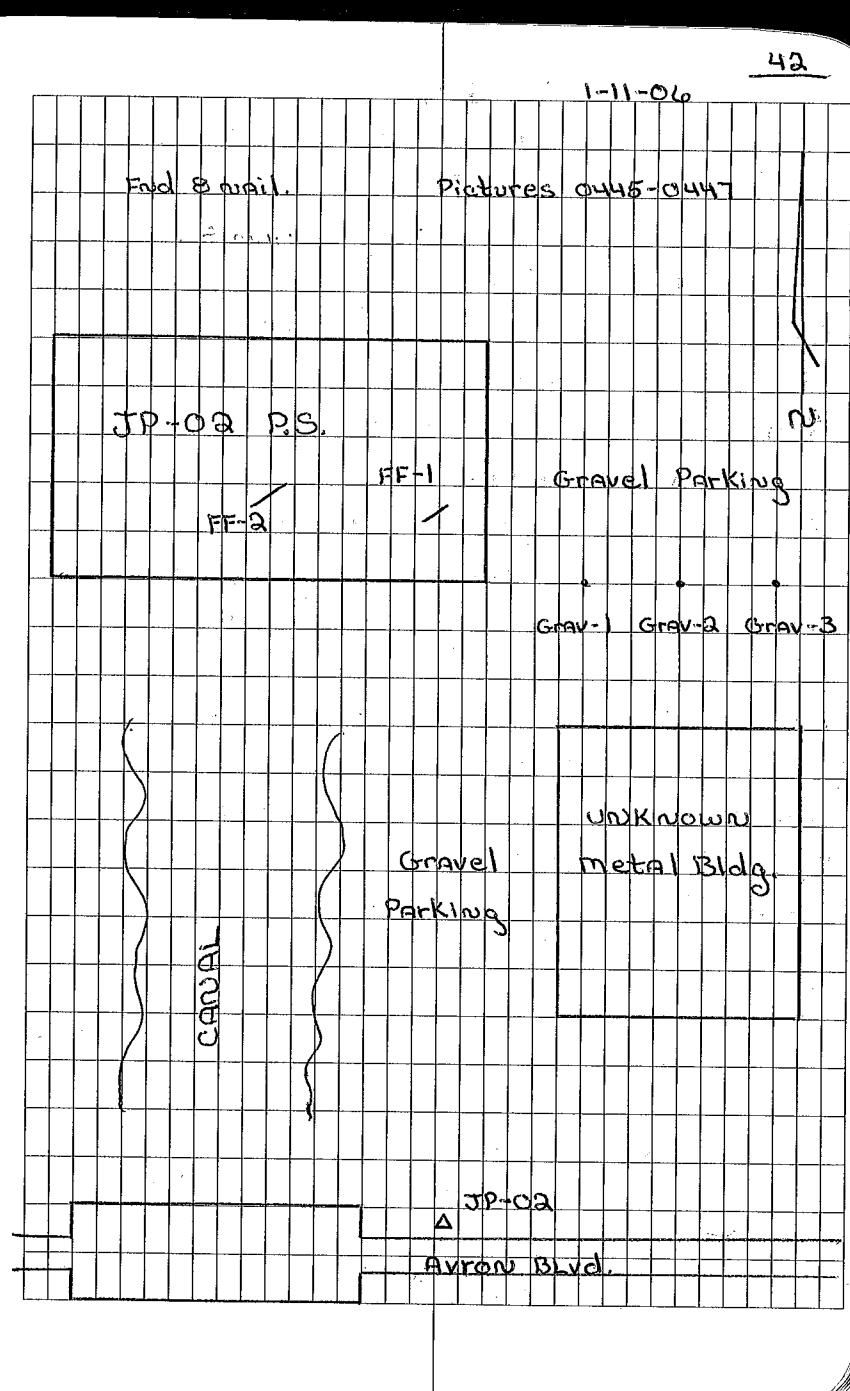 42
1-11-06
Fnd 8 nail.
Pictures 0445-0447
N
JP-02 P.S.
FF-1
FF-2
Gravel Parking
Grav-1 Grav-2 Grav-3
UNKNOWN
Metal Bldg.
Gravel
Parking
CANAL
JP-02
Avron Blvd.